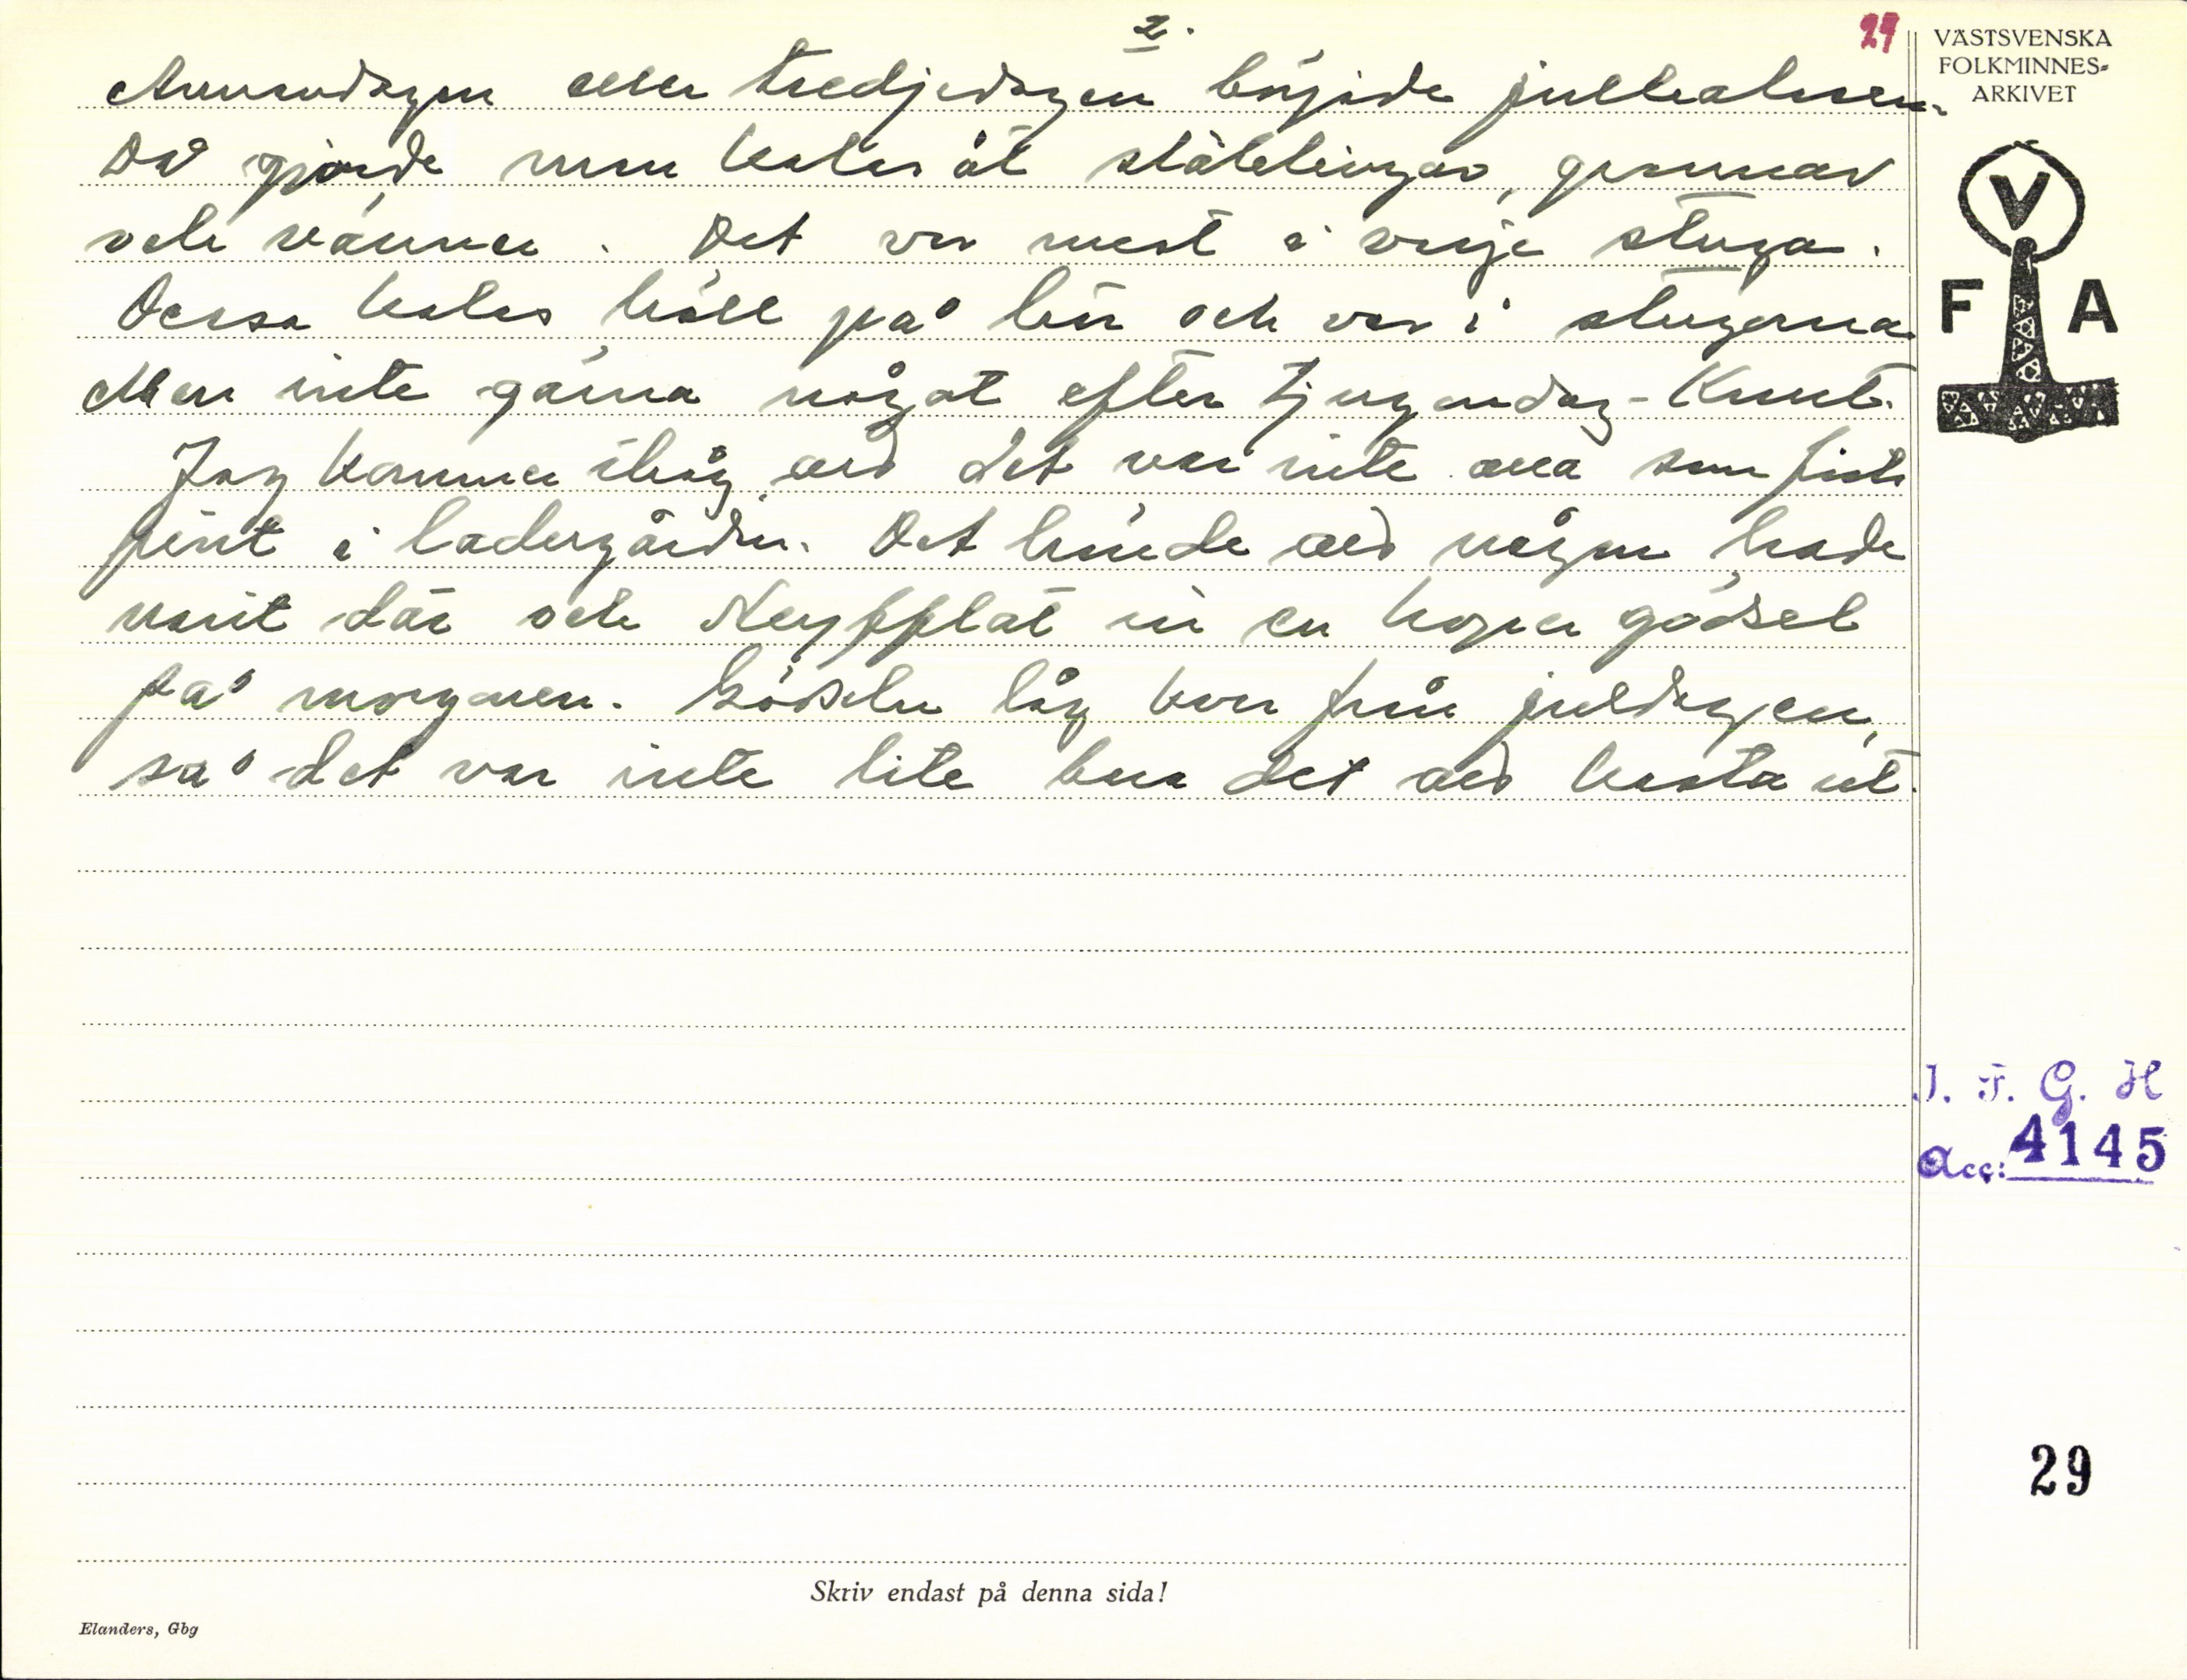 2.
29
VÄSTSVENSKA
FOLKMINNES-
ARKIVET
V
F A
Annandagen eller tredjedagen började julkalasen.
Då gjorde man kalas åt släktingar, grannar
och vänner. Det var mest i varje stuga.
Dessa kalas höll på här och var i stugorna.
Men inte gärna något efter tjugondag-Knut.
Jag kommer ihåg att det var inte alla som fick
fint i ladugården. Det hände att någon hade
varit där och skyfflat in en hoper gödsel
på morgonen. Gödseln låg kvar från juldagen,
så det var inte lite bara det att kasta ut.
I. F. G. H
Acc: 4145
29
Skriv endast på denna sida!
Elanders, Gbg